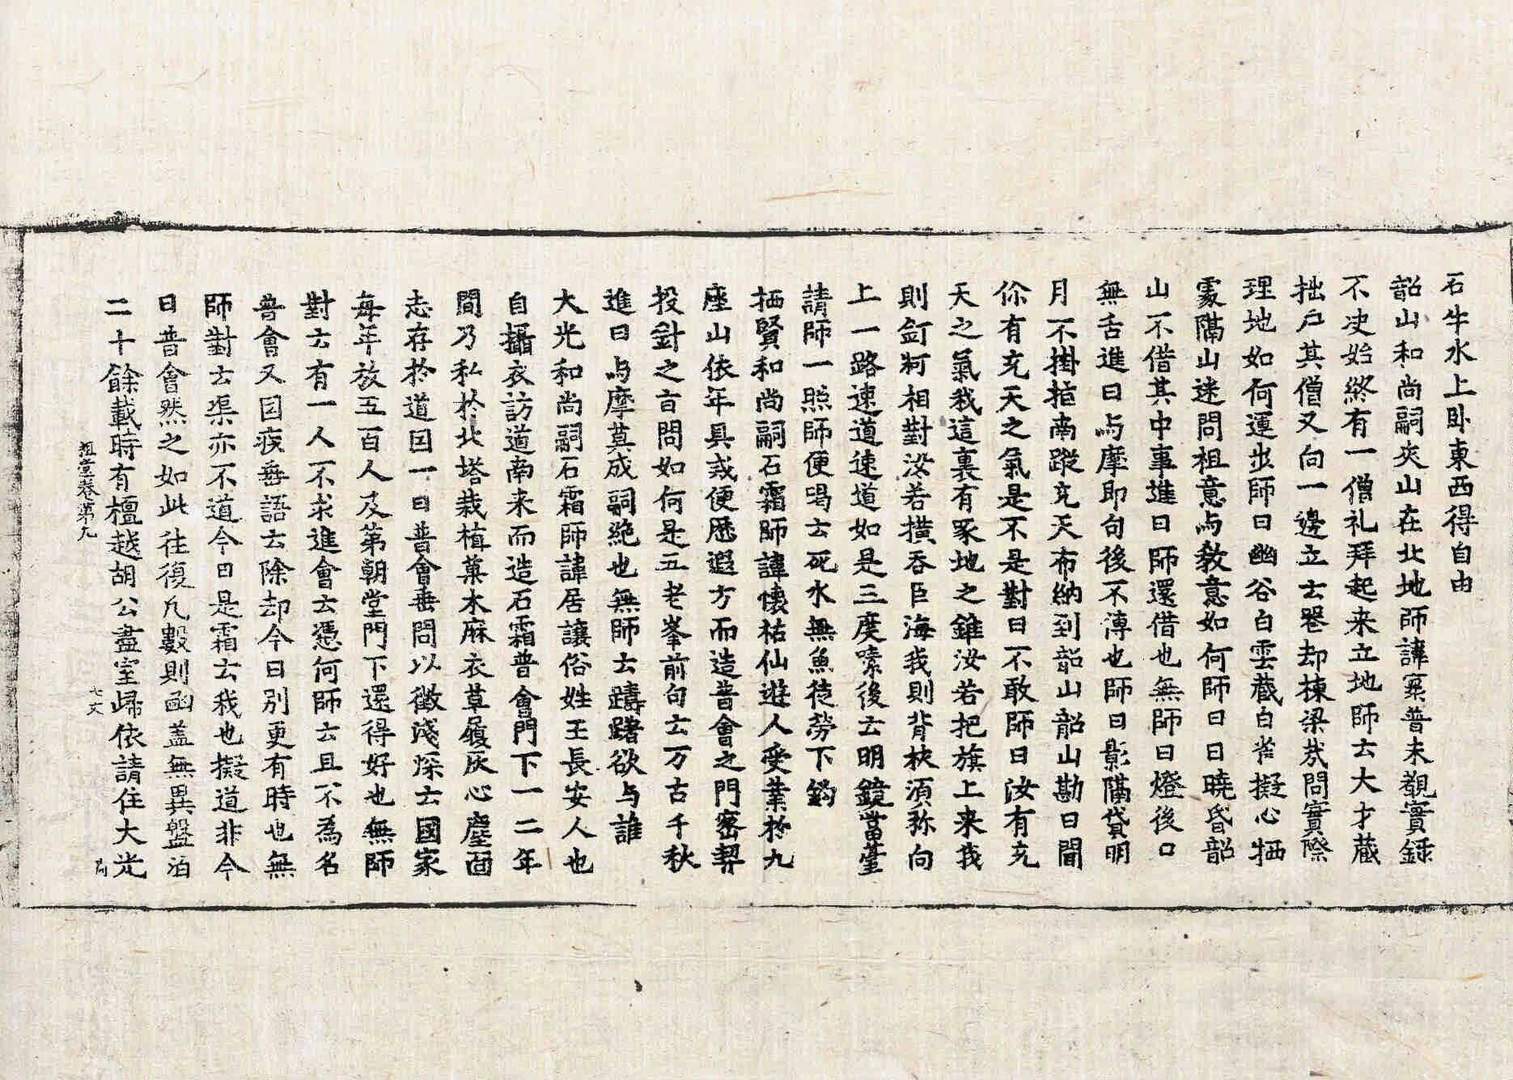 石牛水上卧東西得自由
韶山和尚嗣夾山在北地師諱寰普未覩實録
不决始終有一僧礼拜起来立地師云大才藏
拙户其僧又向一邊立云喪却棟梁㦲問實際
理地如何運出師曰幽谷白雲藏白雀擬心栖
䖏隔山迷問祖意与教意如何師曰日曉昏韶
山不借其中事進曰師還借也無師曰燈後口
無舌進曰与摩即句後不傳也師曰影隔貸明
月不掛指南蹤充天布納到韶山韶山勘曰聞
你有充天之氣是不是對曰不敢師曰汝有充
天之氣我這裏有豕地之錐汝若把旗上来我
則釰䂎相對汝若橫吞巨海我則背枕須弥向
上一路速道速道如是三度嗦後云明鏡當臺
請師一照師便喝云死水無魚徒勞下鈎
栖賢和尚嗣石霜師諱懷祐仙遊人受業於九
座山依年具戒便歷遐方而造普會之門密契
投針之言問如何是五老峯前句云万古千秋
進曰与摩莫成嗣絶也無師云躊躇欲与誰
大光和尚嗣石霜師諱居讓俗姓王長安人也
自攝衣訪道南来而造石霜普會門下一二年
間乃私於北塔栽植菓木麻衣草履灰心塵面
志存於道因一日普會垂問以徵淺深云國家
每年放五百人及第朝堂門下還得好也無師
對云有一人不求進會云憑何師云且不為名
普會又因疾垂語云除却今日別更有時也無
師對云渠亦不道今日是霜云我也擬道非今
日普會然之如此往復凡數則函盖無異盤泊
二十餘載時有檀越胡公盡室歸依請住大光
祖堂卷第九 七丈